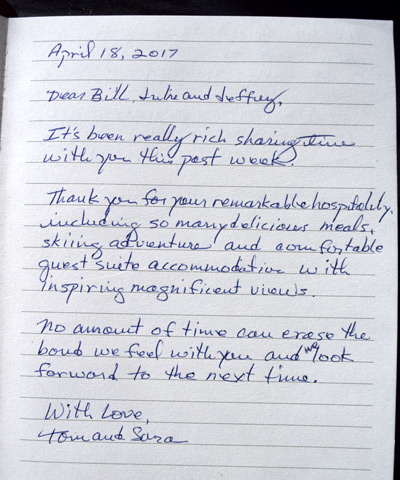 April 18, 2017
Dear Bill, Julie and Jeffrey,
It's been really rich sharing time
with you this past week.
Thank you for your remarkable hospitality,
including so many delicious meals,
skiing adventure and comfortable
guest suite accommodation with
inspiring magnificent views.
No amount of time can erase the
bond we feel with you and we look
forward to the next time.
With Love,
Tom and Sara